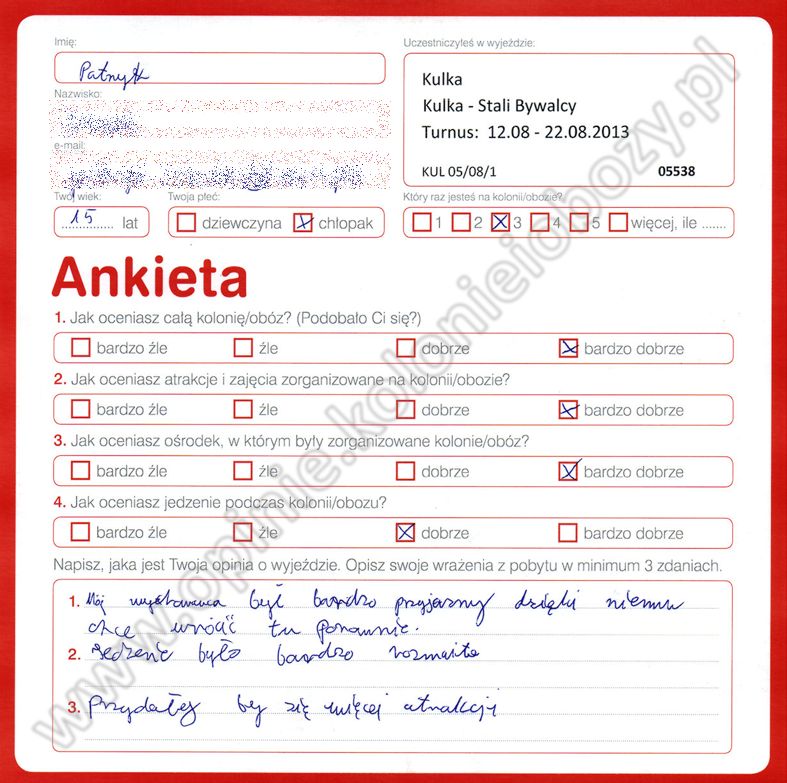 Imię:
Patryk
Uczestniczyłeś w wyjeździe:
Kulka
Kulka - Stali Bywalcy
Turnus: 12.08 - 22.08.2013
KUL 05/08/1 05538
Nazwisko:
e-mail:
Twój wiek: Twoja płeć: Który raz jesteś na kolonii/obozie?
15 lat dziewczyna chłopak 1 2 3 4 5 więcej, ile .......
Ankieta
1. Jak oceniasz całą kolonię/obóz? (Podobało Ci się?)
bardzo źle źle dobrze bardzo dobrze
2. Jak oceniasz atrakcje i zajęcia zorganizowane na kolonii/obozie?
bardzo źle źle dobrze bardzo dobrze
3. Jak oceniasz ośrodek, w którym były zorganizowane kolonie/obóz?
bardzo źle źle dobrze bardzo dobrze
4. Jak oceniasz jedzenie podczas kolonii/obozu?
bardzo źle źle dobrze bardzo dobrze
Napisz, jaka jest Twoja opinia o wyjeździe. Opisz swoje wrażenia z pobytu w minimum 3 zdaniach.
1. Mój wychowawca był bardzo przyjazny dzięki niemu
chcę wrócić tu ponownie.
2. Jedzenie było bardzo rozmaite
3. Przydałoby by się więcej atrakcji
www.opinie.kolonieiobozy.pl